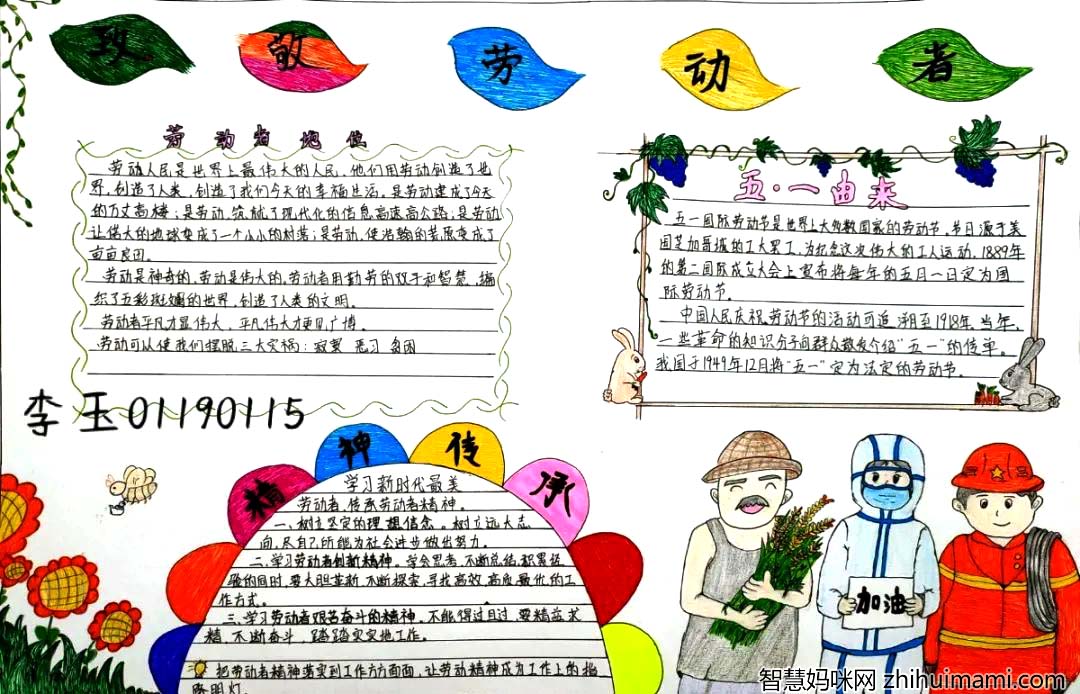 致敬劳动者
劳动者地位
劳动人民是世界上最伟大的人民，他们用劳动创造了世
界，创造了人类，创造了我们今天的幸福生活。是劳动建成了今天
的万丈高楼；是劳动，筑就了现代化的信息高速高公路；是劳动
让偌大的地球变成了一个小小的村落；是劳动，使浩翰的荒原变成了
亩亩良田。
劳动是神奇的，劳动是伟大的，劳动者用勤劳的双手和智慧，编
织了五彩斑斓的世界，创造了人类的文明。
劳动者平凡才显伟大，平凡伟大才更见广博。
劳动可以使我们摆脱三大灾祸：寂寞 恶习 贫困
五·一由来
五一国际劳动节是世界上大多数国家的劳动节。节日源于美
国芝加哥城的工大罢工，为纪念这次伟大的工人运动，1889年
的第二国际成立大会上宣布将每年的五月一日定为国
际劳动节。
中国人民庆祝劳动节的活动可追溯至1918年。当年，
一些革命的知识分子向群众散发介绍"五一"的传单。
我国于1949年12月将"五一"定为法定的劳动节。
李玉01190115
精神传承
学习新时代最美
劳动者，传承劳动者精神。
一、树立坚定的理想信念。树立远大志
向，尽自己所能为社会进步做出努力。
二、学习劳动者创新精神。学会思考，不断总结，积累经
验的同时，要大胆革新，不断探索，寻找高效，高质最优的工
作方式。
三、学习劳动者艰苦奋斗的精神。不能得过且过，要精益求
精，不断奋斗，踏踏实实地工作。
把劳动者精神落实到工作方方面面，让劳动精神成为工作上的指
路明灯。
加油
智慧妈咪网 zhihuimami.com